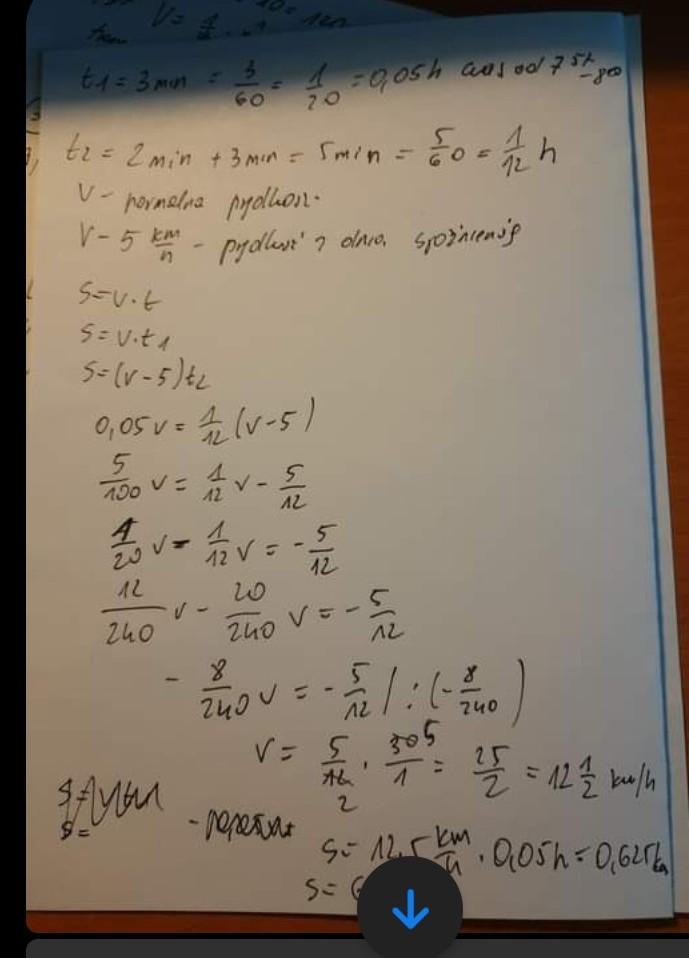 V=
t1 = 3 min = 3/60 = 1/20 = 0,05h czas od 7 57 - 8 00
t2 = 2 min + 3 min = 5 min = 5/60 = 1/12 h
V - normalna
V - 5 km/h - z dnia
S=v·t
S=v·t1
S=(v-5)t2
0,05v = 1/12 (v-5)
5/100 v = 1/12 v - 5/12
1/20 v - 1/12 v = - 5/12
12/240 v - 20/240 v = - 5/12
- 8/240 v = - 5/12 / : (- 8/240)
V = 5/12 · 30/1 = 25/2 = 12 1/2 km/h
2 5
S =
S = 12,5 km/h · 0,05h = 0,625km
S =